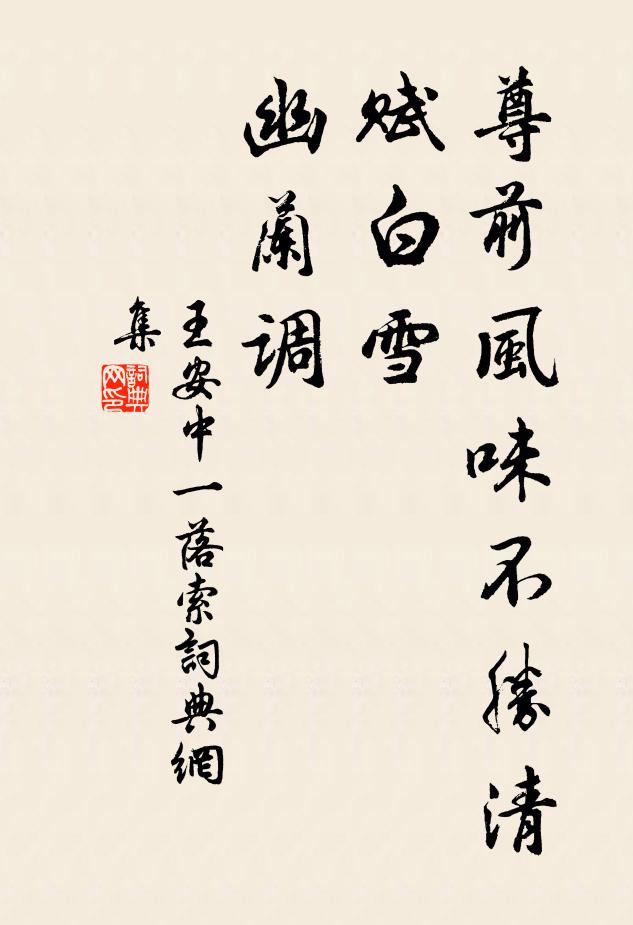 尊前風味不勝清
赋白雪
幽蘭调
王安中一落索詞典網
集
詞典
网印